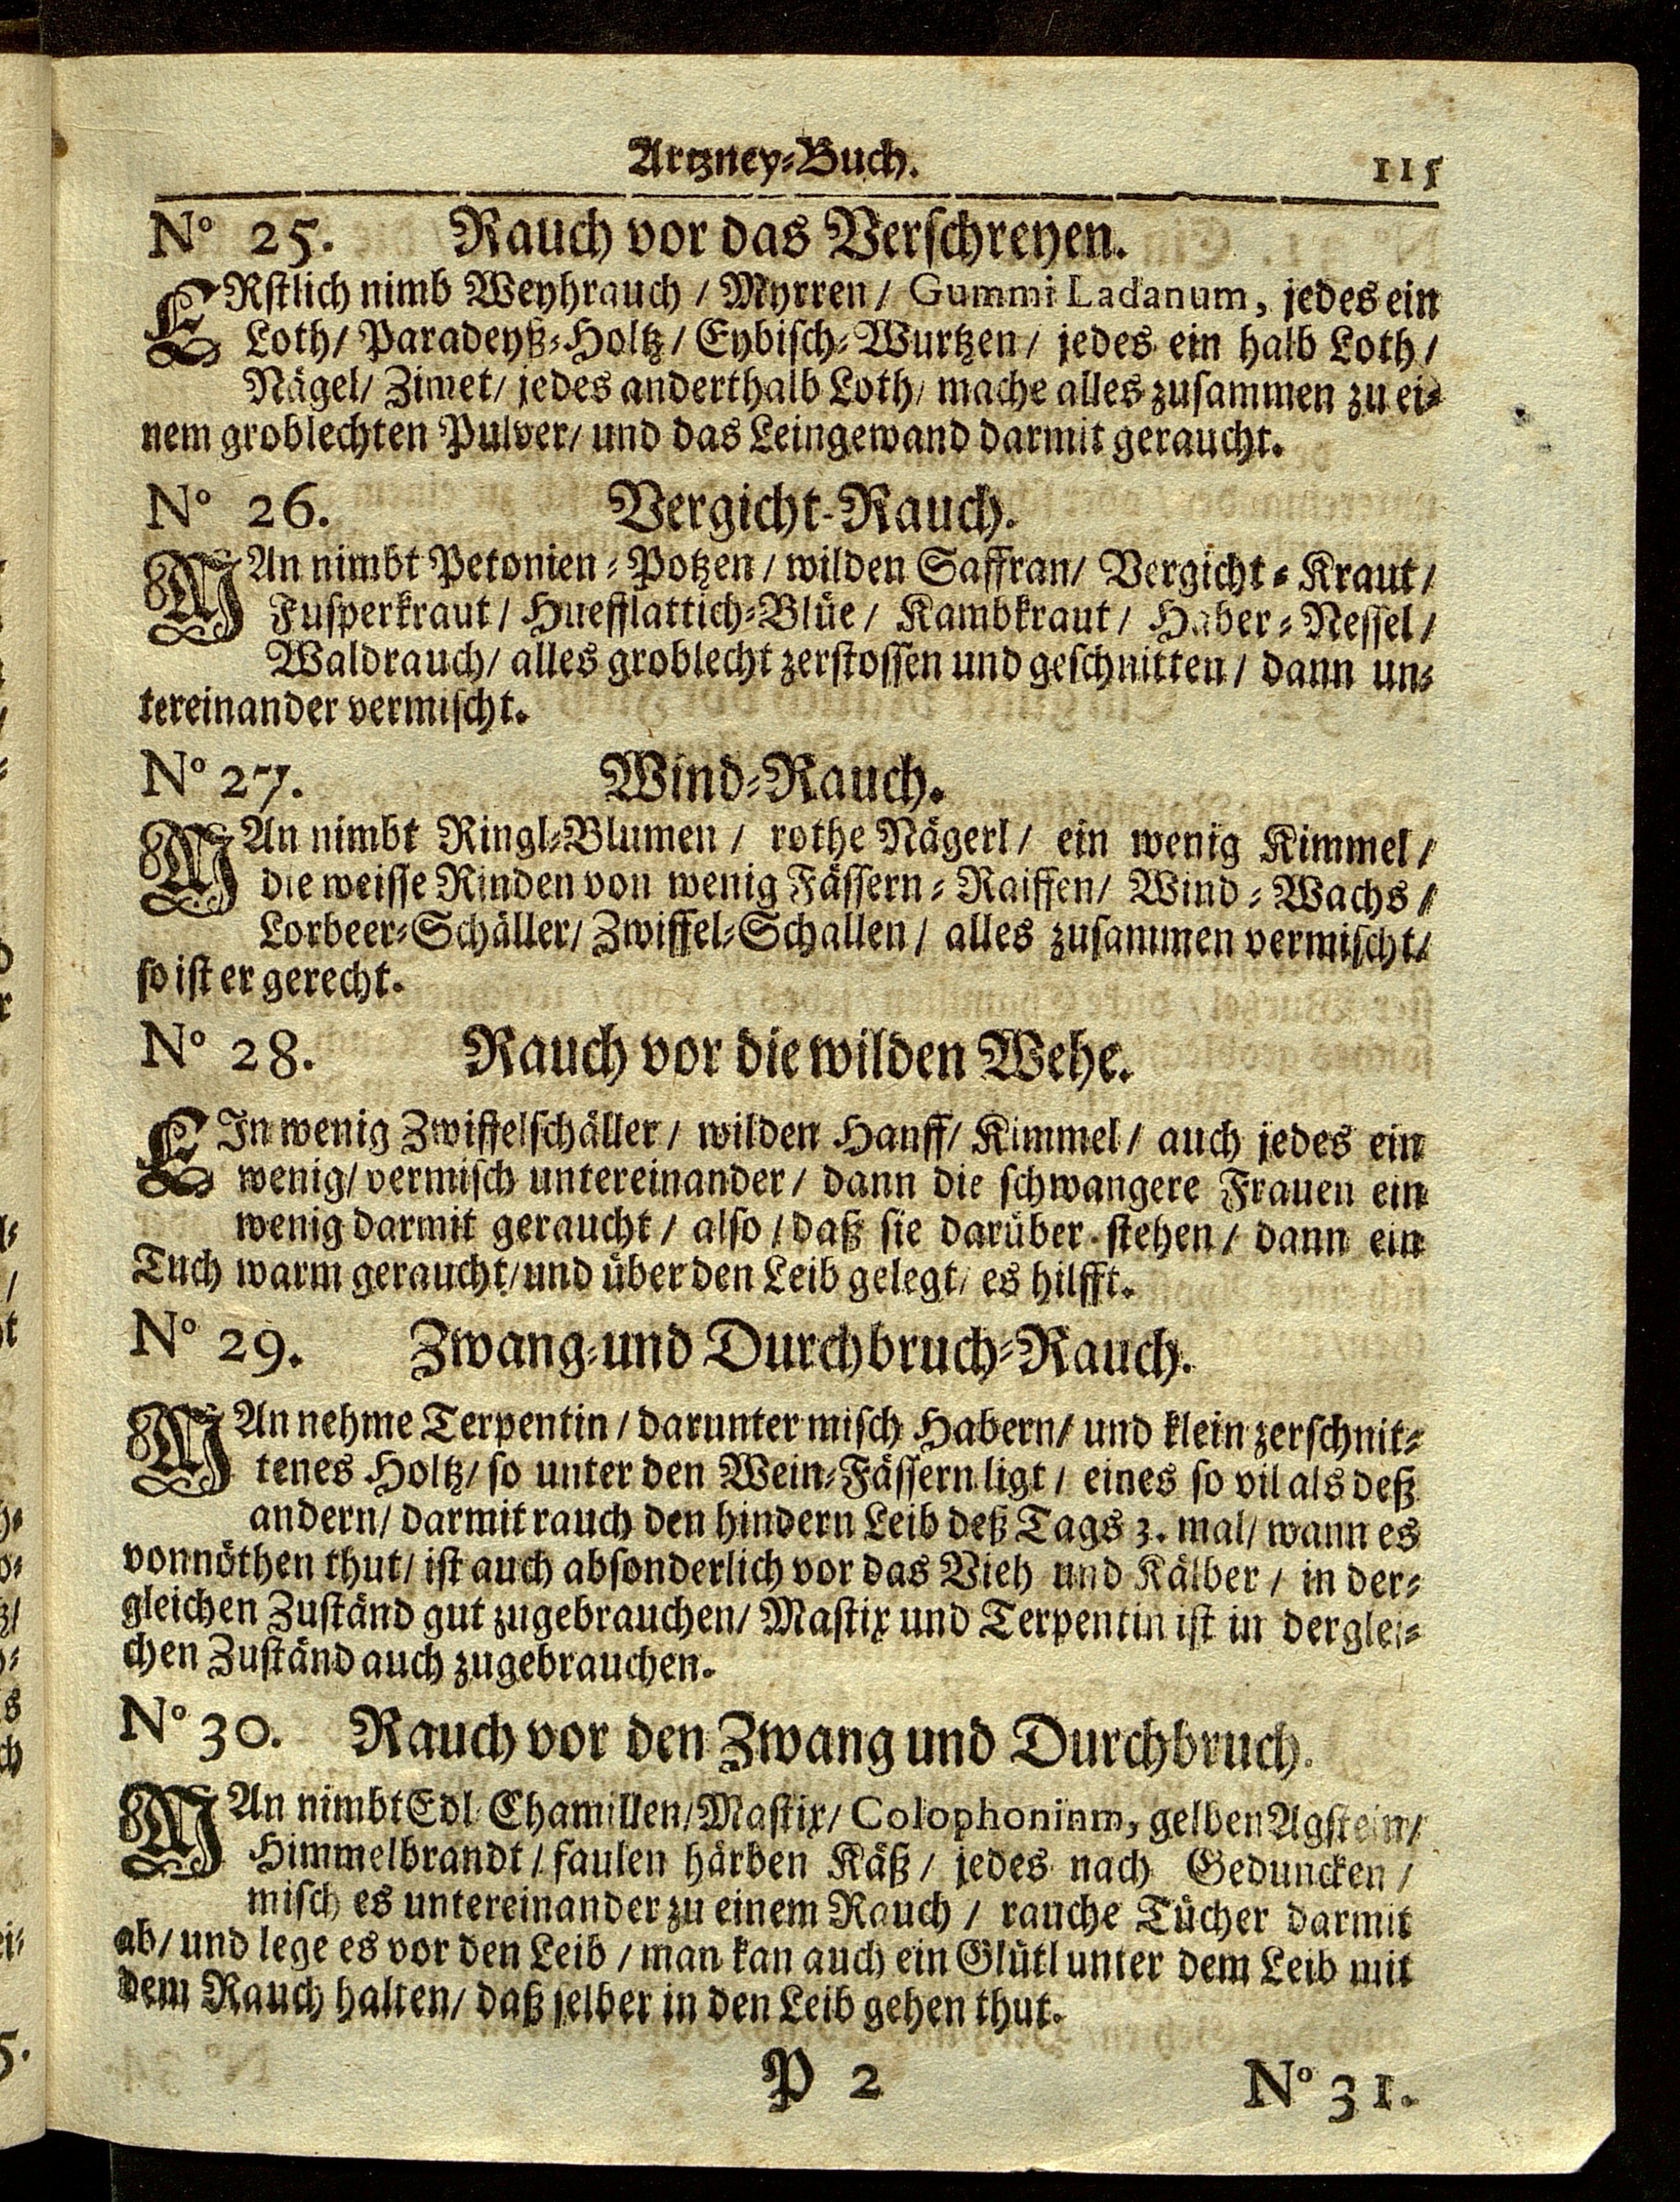 Artzney-Buch. 115
No 25. Rauch vor das Verschreyen.
ERstlich nimb Weyhrauch / Myrren / Gummi Ladanum, jedes ein
Loth / Paradeyß-Holtz / Eybisch-Wurtzen / jedes ein halb Loth /
Nägel / Zimet / jedes anderthalb Loth / mache alles zusammen zu ei-
nem groblechten Pulver / und das Leingewand darmit geraucht.
No 26. Vergicht-Rauch.
MAn nimbt Petonien-Potzen / wilden Saffran / Vergicht-Kraut /
Fusperkraut / Huefflattich-Blüe / Kambkraut / Haber-Nessel /
Waldrauch / alles groblecht zerstossen und geschnitten / dann un-
tereinander vermischt.
No 27. Wind-Rauch.
MAn nimbt Ringl-Blumen / rothe Nägerl / ein wenig Kimmel /
die weisse Rinden von wenig Fässern-Raiffen / Wind-Wachs /
Lorbeer-Schäller / Zwiffel-Schallen / alles zusammen vermischt /
so ist er gerecht.
No 28. Rauch vor die wilden Wehe.
EIn wenig Zwiffelschäller / wilden Hanff / Kimmel / auch jedes ein
wenig / vermisch untereinander / dann die schwangere Frauen ein
wenig darmit geraucht / also / daß sie darüber stehen / dann ein
Tuch warm geraucht / und über den Leib gelegt / es hilfft.
No 29. Zwang-und Durchbruch-Rauch.
MAn nehme Terpentin / darunter misch Habern / und klein zerschnit-
tenes Holtz / so unter den Wein-Fässern ligt / eines so vil als deß
andern / darmit rauch den hindern Leib deß Tags 3. mal / wann es
vonnöthen thut / ist auch absonderlich vor das Vieh und Kälber / in der-
gleichen Zuständ gut zugebrauchen / Mastix und Terpentin ist in derglei-
chen Zuständ auch zugebrauchen.
No 30. Rauch vor den Zwang und Durchbruch.
MAn nimbt Edl Chamillen / Mastix / Colophonium, gelben Agstein /
Himmelbrandt / faulen härben Käß / jedes nach Geduncken /
misch es untereinander zu einem Rauch / rauche Tücher darmit
ab / und lege es vor den Leib / man kan auch ein Glütl unter dem Leib mit
dem Rauch halten / daß selber in den Leib gehen thut.
P 2 No 31.